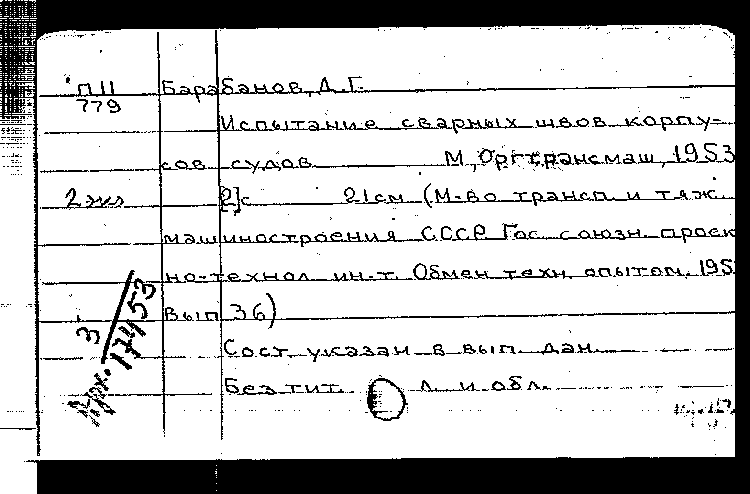 П11 Барабанов, Д. Г.
779
Испытание сварных швов корпу-
сов судов М, Оргтрансмаш, 1953
2 экз [2]с 21см (М-во трансп. и тяж.
машиностроения СССР. Гос. союзн. проек
но-технол. ин-т. Обмен техн. опытом, 195
Вып 36)
Сост. указан в вып. дан.
Без тит. л. и обл.
3
17453